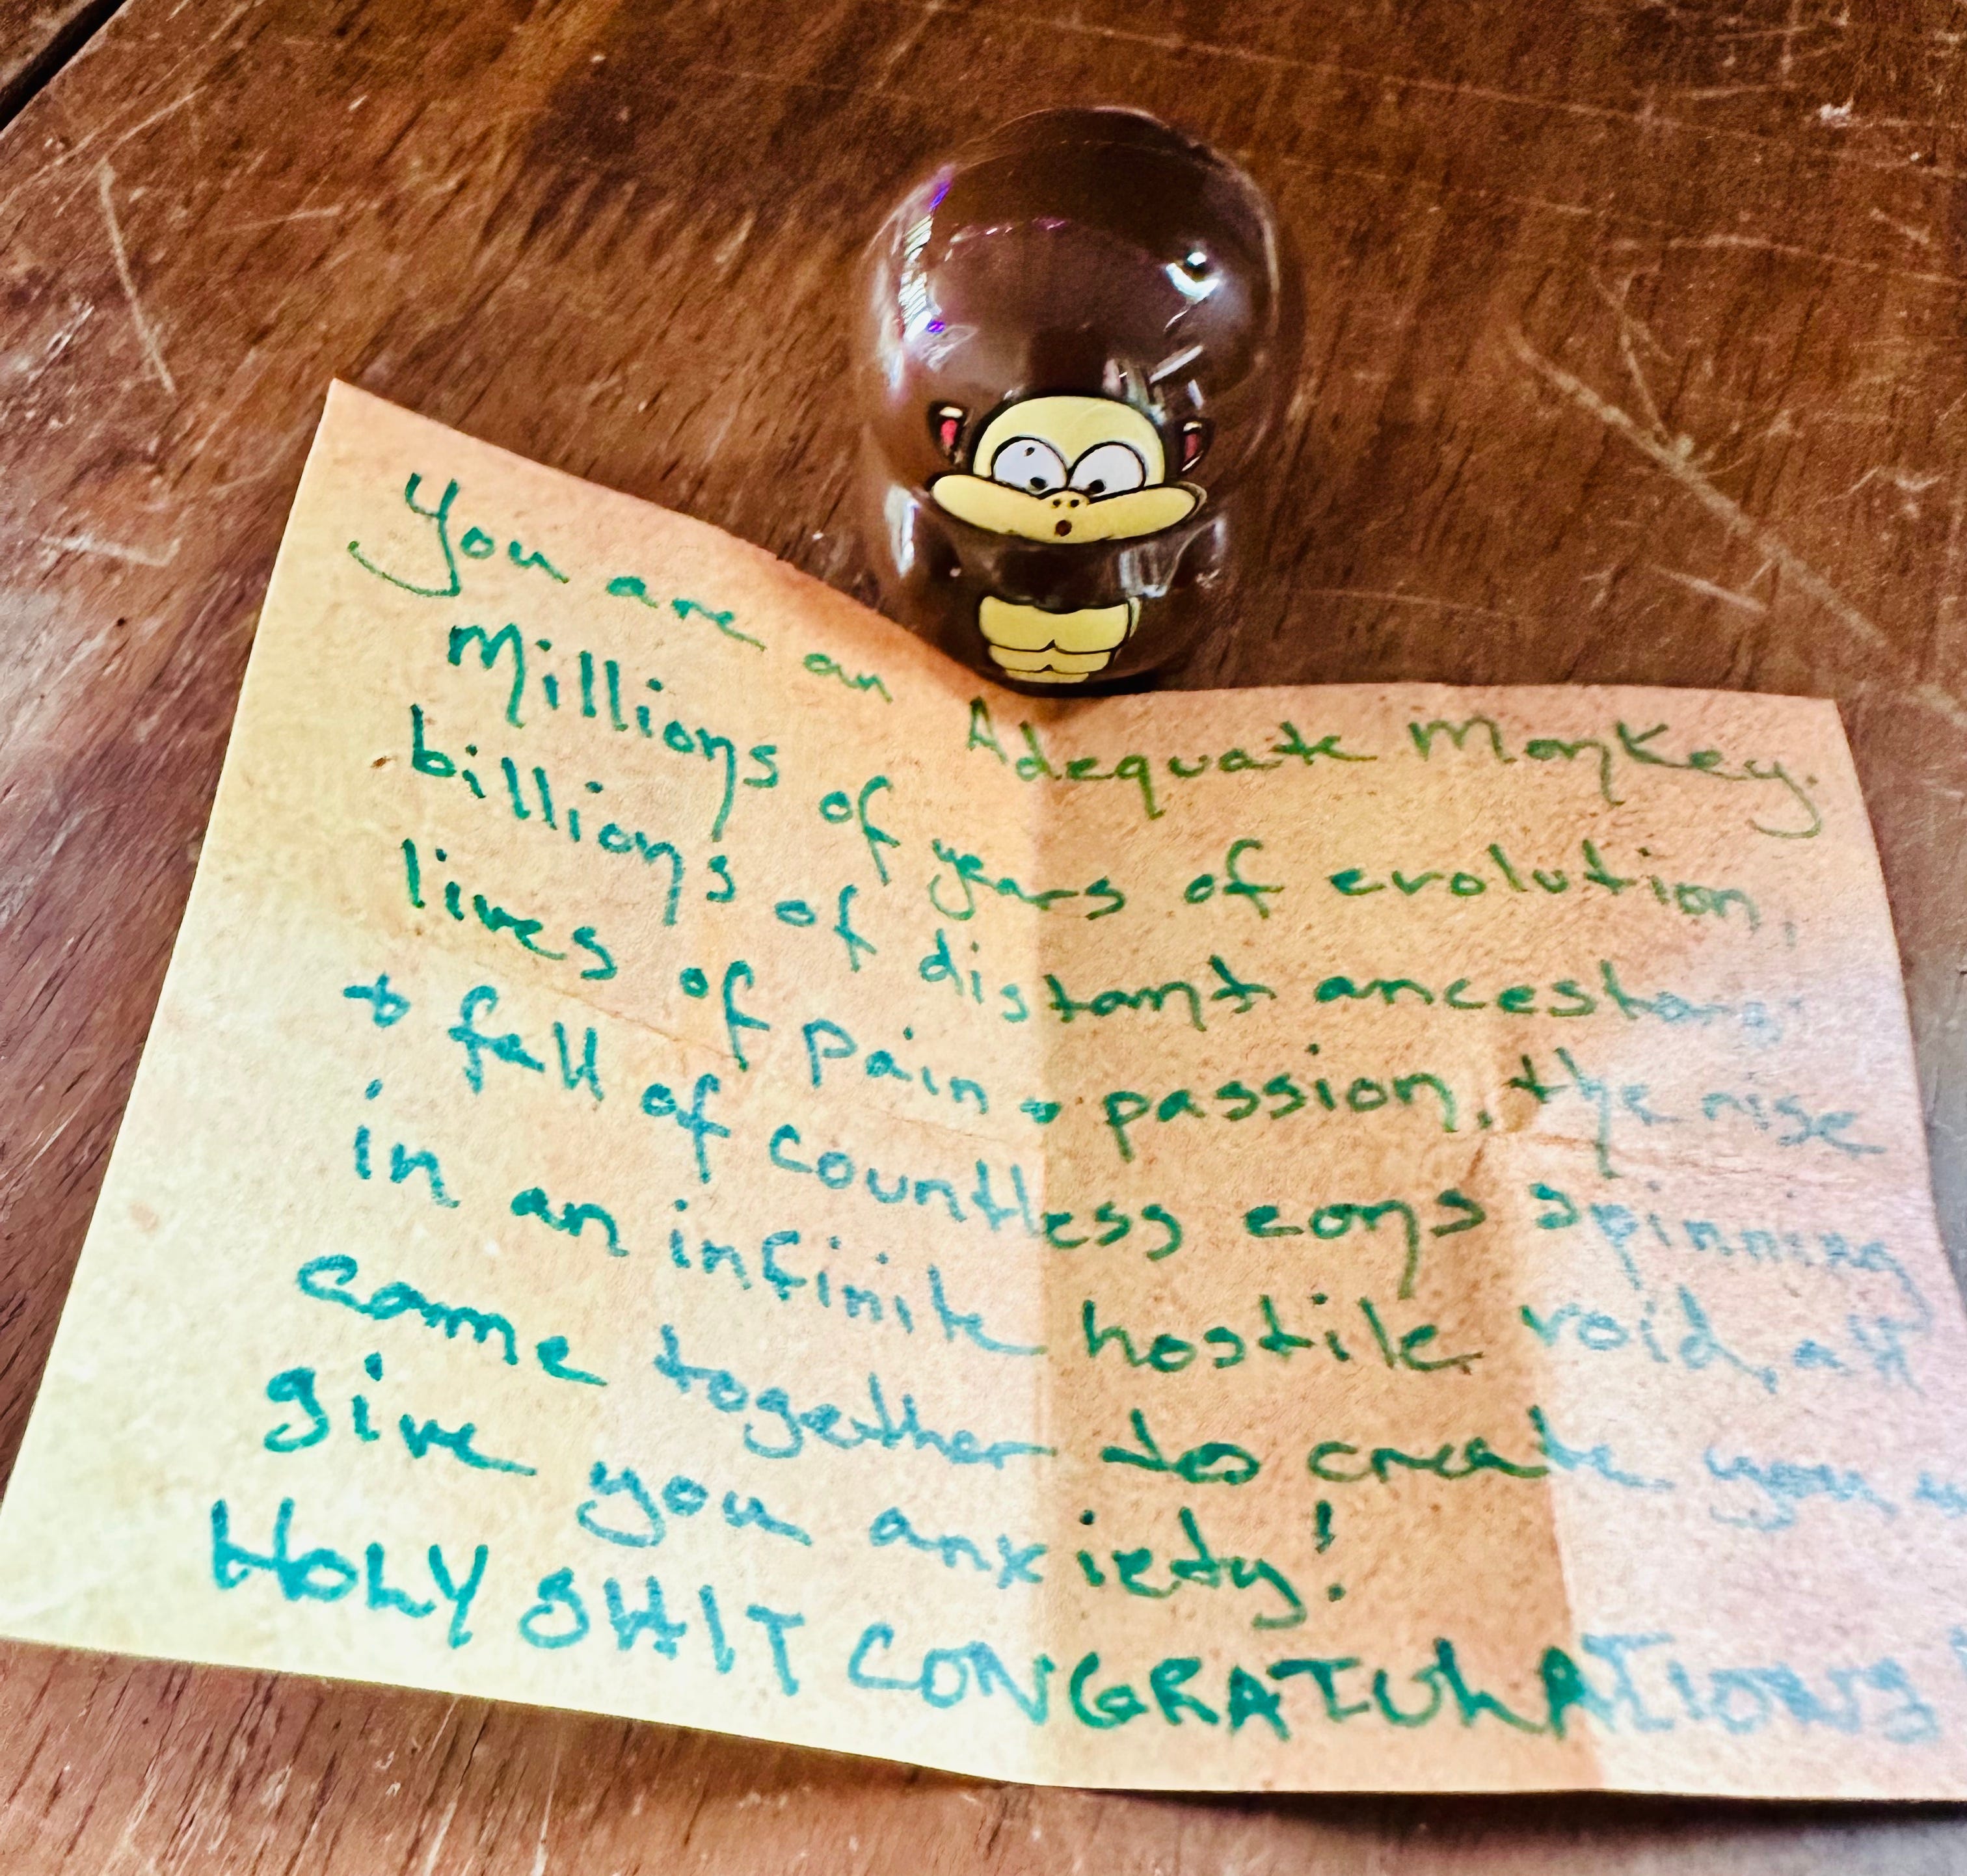 You are an Adequate Monkey.
Millions of years of evolution,
billions of distant ancestors
lives of pain & passion, the rise
& fall of countless eons spinning
in an infinite hostile void, all
come together to create you
give you anxiety!
HOLY SHIT CONGRATULATIONS